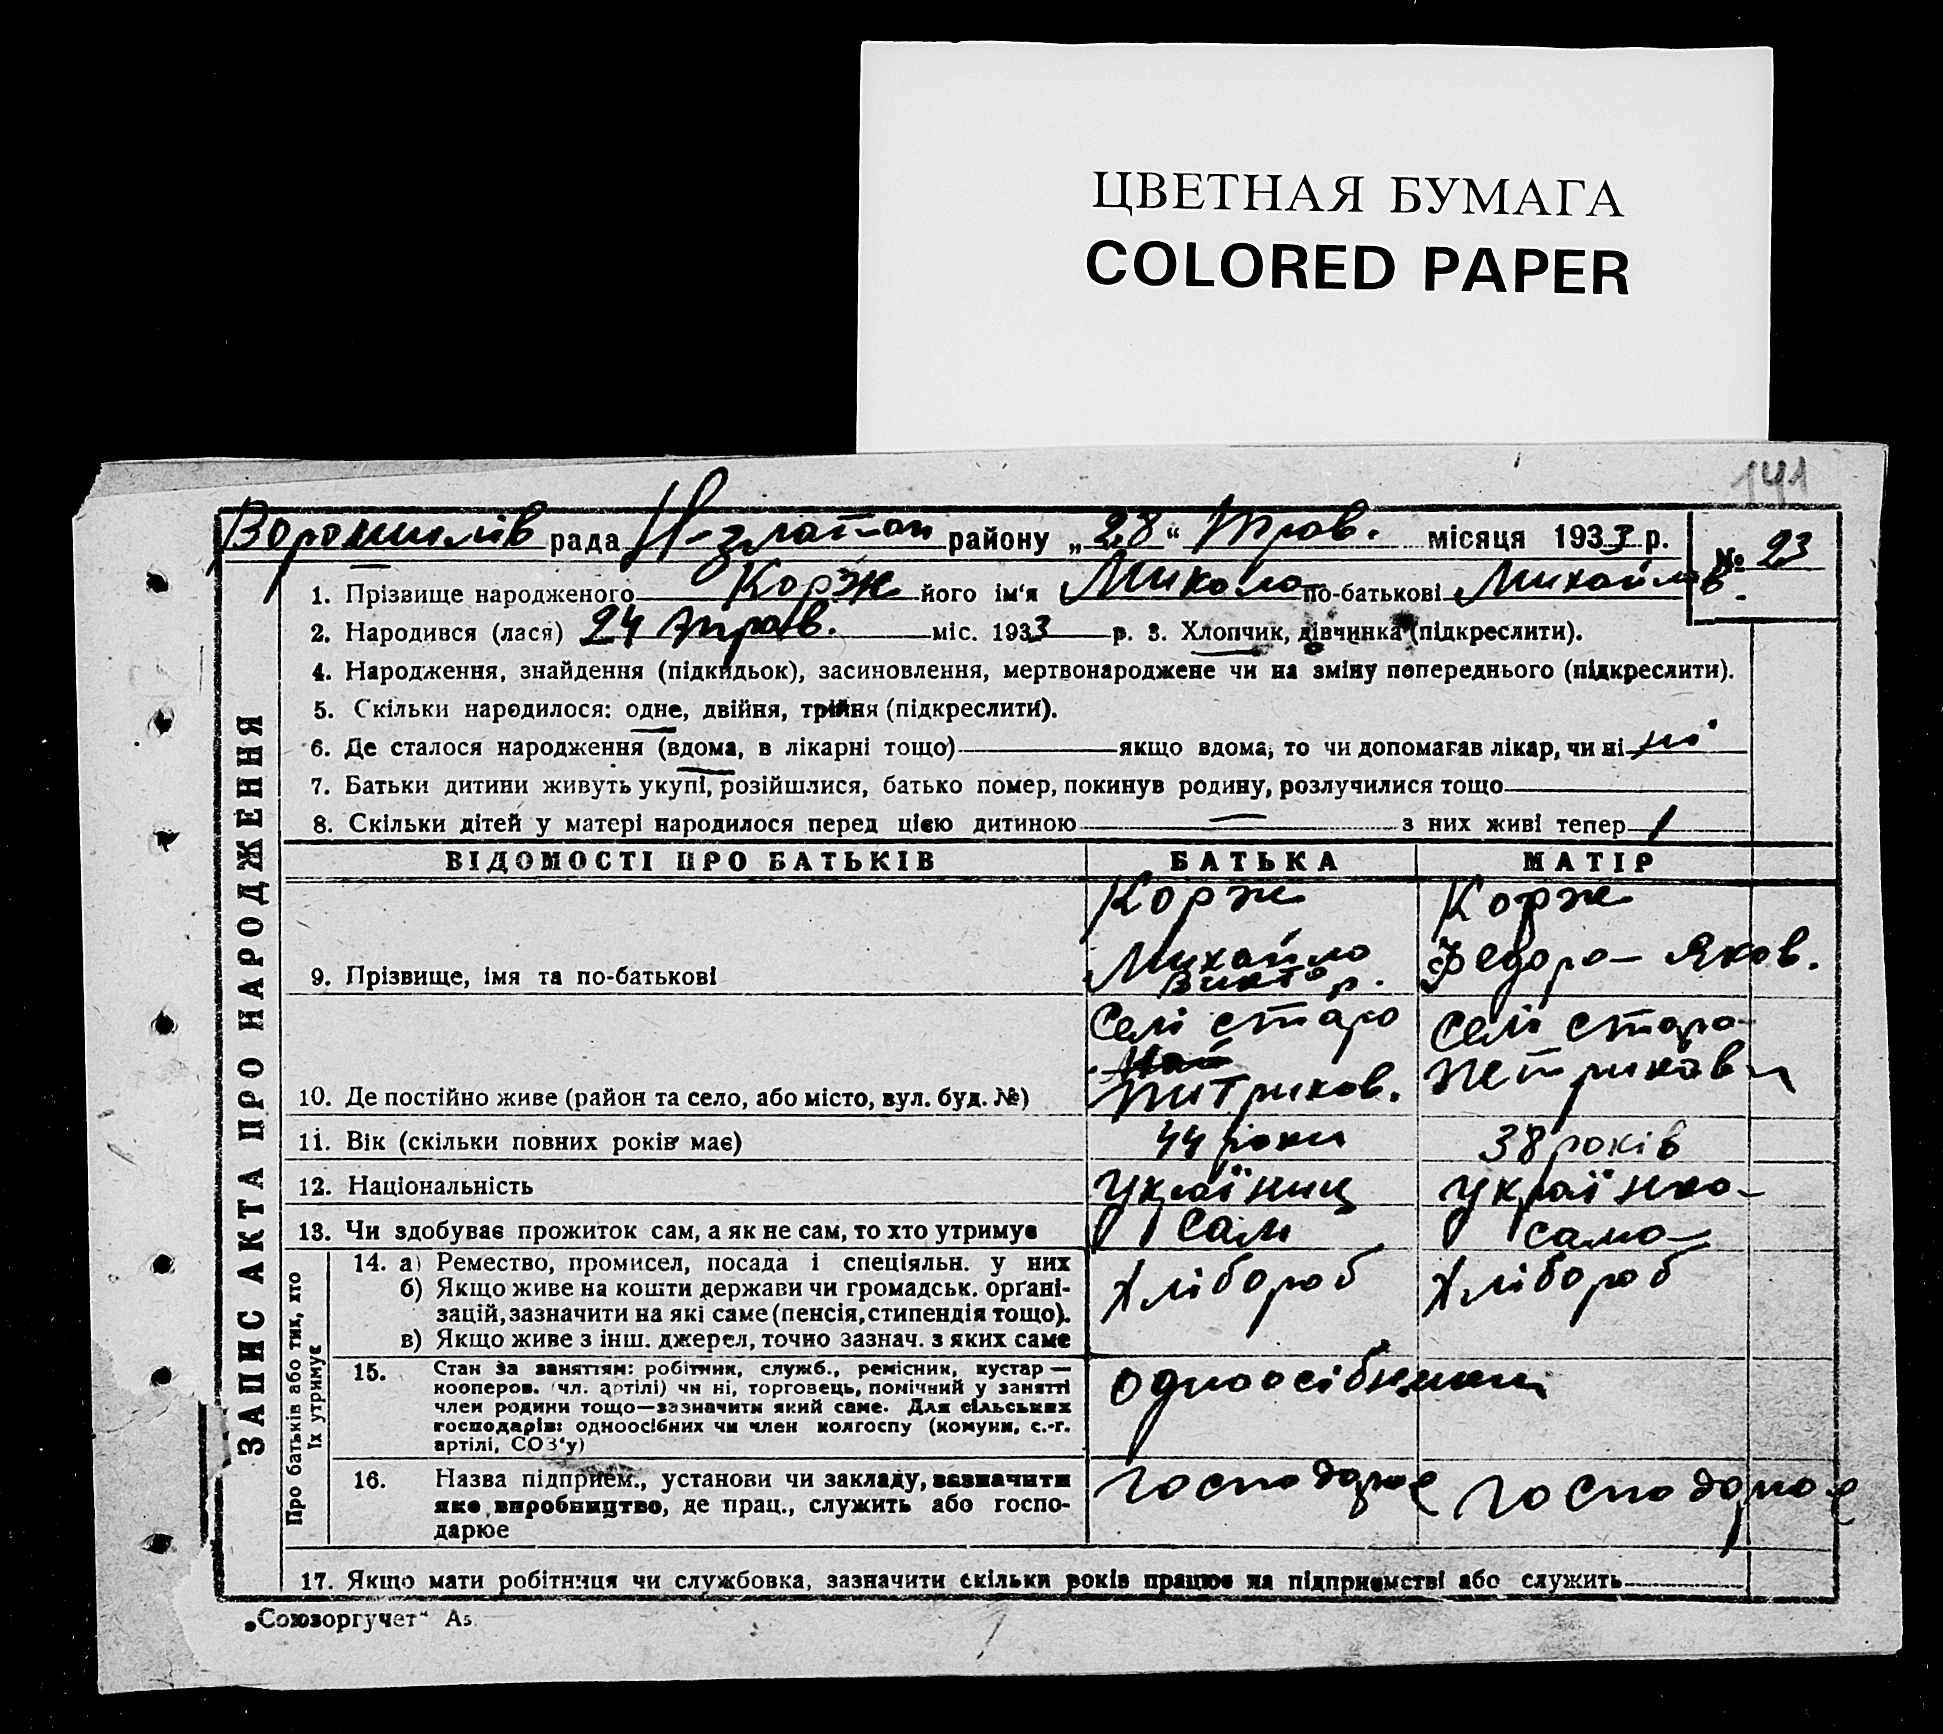 ЦВЕТНАЯ БУМАГА
COLORED PAPER
141
Ворошилів рада Н-златоп району „28“ Трав. місяця 1933 р. № 23
1. Прізвище народженого Корж його ім'я Микола по-батькові Михайлов.
2. Народився (лася) 24 трав. міс. 1933 р. 3. Хлопчик, дівчинка (підкреслити).
4. Народження, знайдення (підкидьок), засиновлення, мертвонароджене чи на зміну попереднього (підкреслити).
5. Скільки народилося: одне, двійня, трійня (підкреслити).
6. Де сталося народження (вдома, в лікарні тощо) якщо вдома, то чи допомагав лікар, чи ні ні
7. Батьки дитини живуть укупі, розійшлися, батько помер, покинув родину, розлучилися тощо
8. Скільки дітей у матері народилося перед цією дитиною — з них живі тепер 1
ЗАПИС АКТА ПРО НАРОДЖЕННЯ
ВІДОМОСТІ ПРО БАТЬКІВ БАТЬКА МАТІР
Корж Корж
Михайло Федора Яков.
9. Прізвище, імя та по-батькові Виктор.
Селі старо Селі старо
10. Де постійно живе (район та село, або місто, вул. буд. №) Питриков. Петриков
11. Вік (скільки повних років має) 44 роки 38 років
12. Національність Україниц Українка
13. Чи здобуває прожиток сам, а як не сам, то хто утримує Сам сама
Про батьків або тих, хто їх утримує
14. а) Ремество, промисел, посада і спеціяльн. у них Хлібороб Хлібороб
б) Якщо живе на кошти держави чи громадськ. орґані-
зацій, зазначити на які саме (пенсія, стипендія тощо).
в) Якщо живе з інш. джерел, точно зазнач. з яких саме
15. Стан за заняттям: робітник, служб., ремісник, кустар —
кооперов. (чл. артілі) чи ні, торговець, помічний у занятті
член родини тощо—зазначити який саме. Для сільських
господарів: одноосібних чи член колгоспу (комуни, с.-г.
артілі, СОЗ'у)
одноосібники
16. Назва підприєм., установи чи закладу, зазначити
яке виробництво, де прац., служить або госпо-
дарює
господарює господарює
17. Якщо мати робітниця чи службовка, зазначити скільки років працює на підприємстві або служить
„Союзоргучет“ Аз